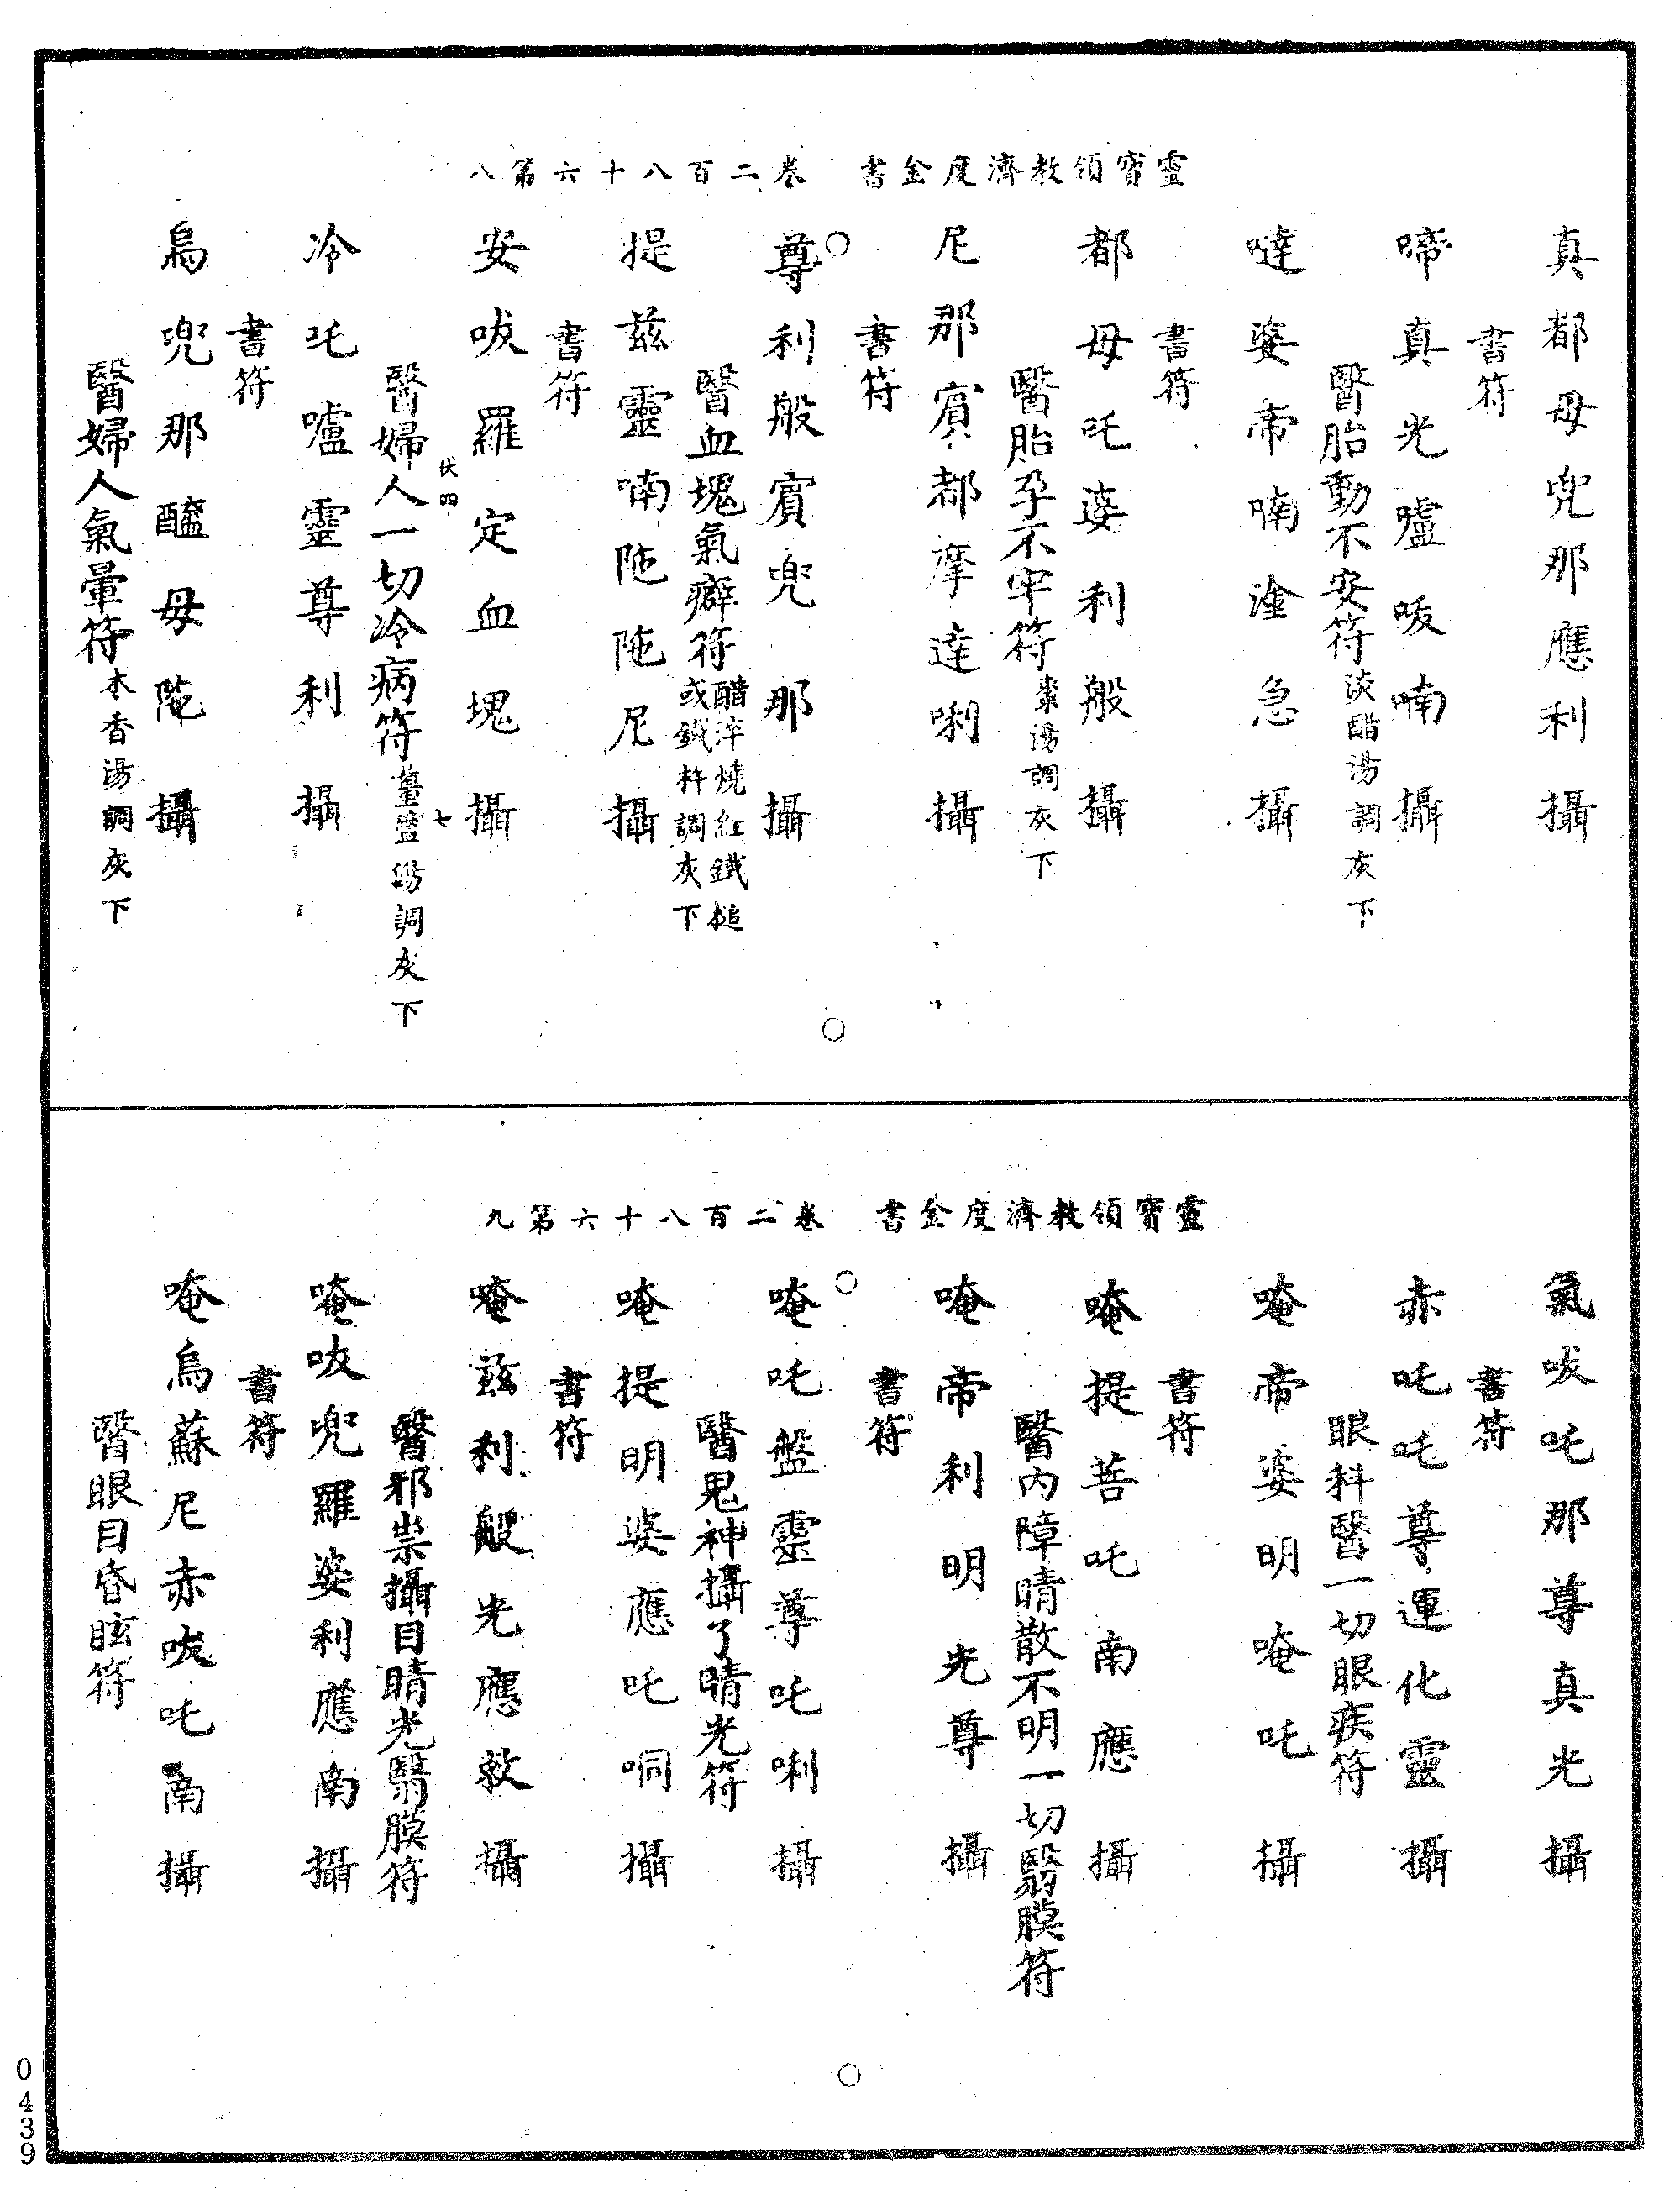 靈寶領教濟度金書　卷二百八十六第八
真都母兜那應利攝
書符
啼真光嚧㕹喃攝
醫胎動不安符淡醋湯調灰下
噠娑帝喃淦急攝
書符
都母吒婆利般攝
醫胎孕不牢符棗湯調灰下
尼那賓都摩達唎攝
書符
尊利般賓兜那攝
醫血塊氣癖符醋淬燒紅鐵鎚或鐵杵調灰下
提茲靈喃陁陁尼攝
書符
安㕹羅定血塊攝
伏四　七
醫婦人一切冷病符薑鹽湯調灰下
冷吒嚧靈尊利攝
書符
烏兜那醯母陁攝
醫婦人氣暈符木香湯調灰下
靈寶領教濟度金書　卷二百八十六第九
氣㕹吒那尊真光攝
書符
赤吒吒尊運化靈攝
眼科醫一切眼疾符
唵帝娑明唵吒攝
書符
唵提菩吒南應攝
醫內障睛散不明一切翳膜符
唵帝利明光尊攝
書符
唵吒盤靈尊吒唎攝
醫鬼神攝了睛光符
唵提明娑應吒哃攝
書符
唵茲利般光應敕攝
醫邪祟攝目睛光翳膜符
唵㕹兜羅娑利應南攝
書符
唵烏蘇尼赤㕹吒南攝
醫眼目昏眩符
0439